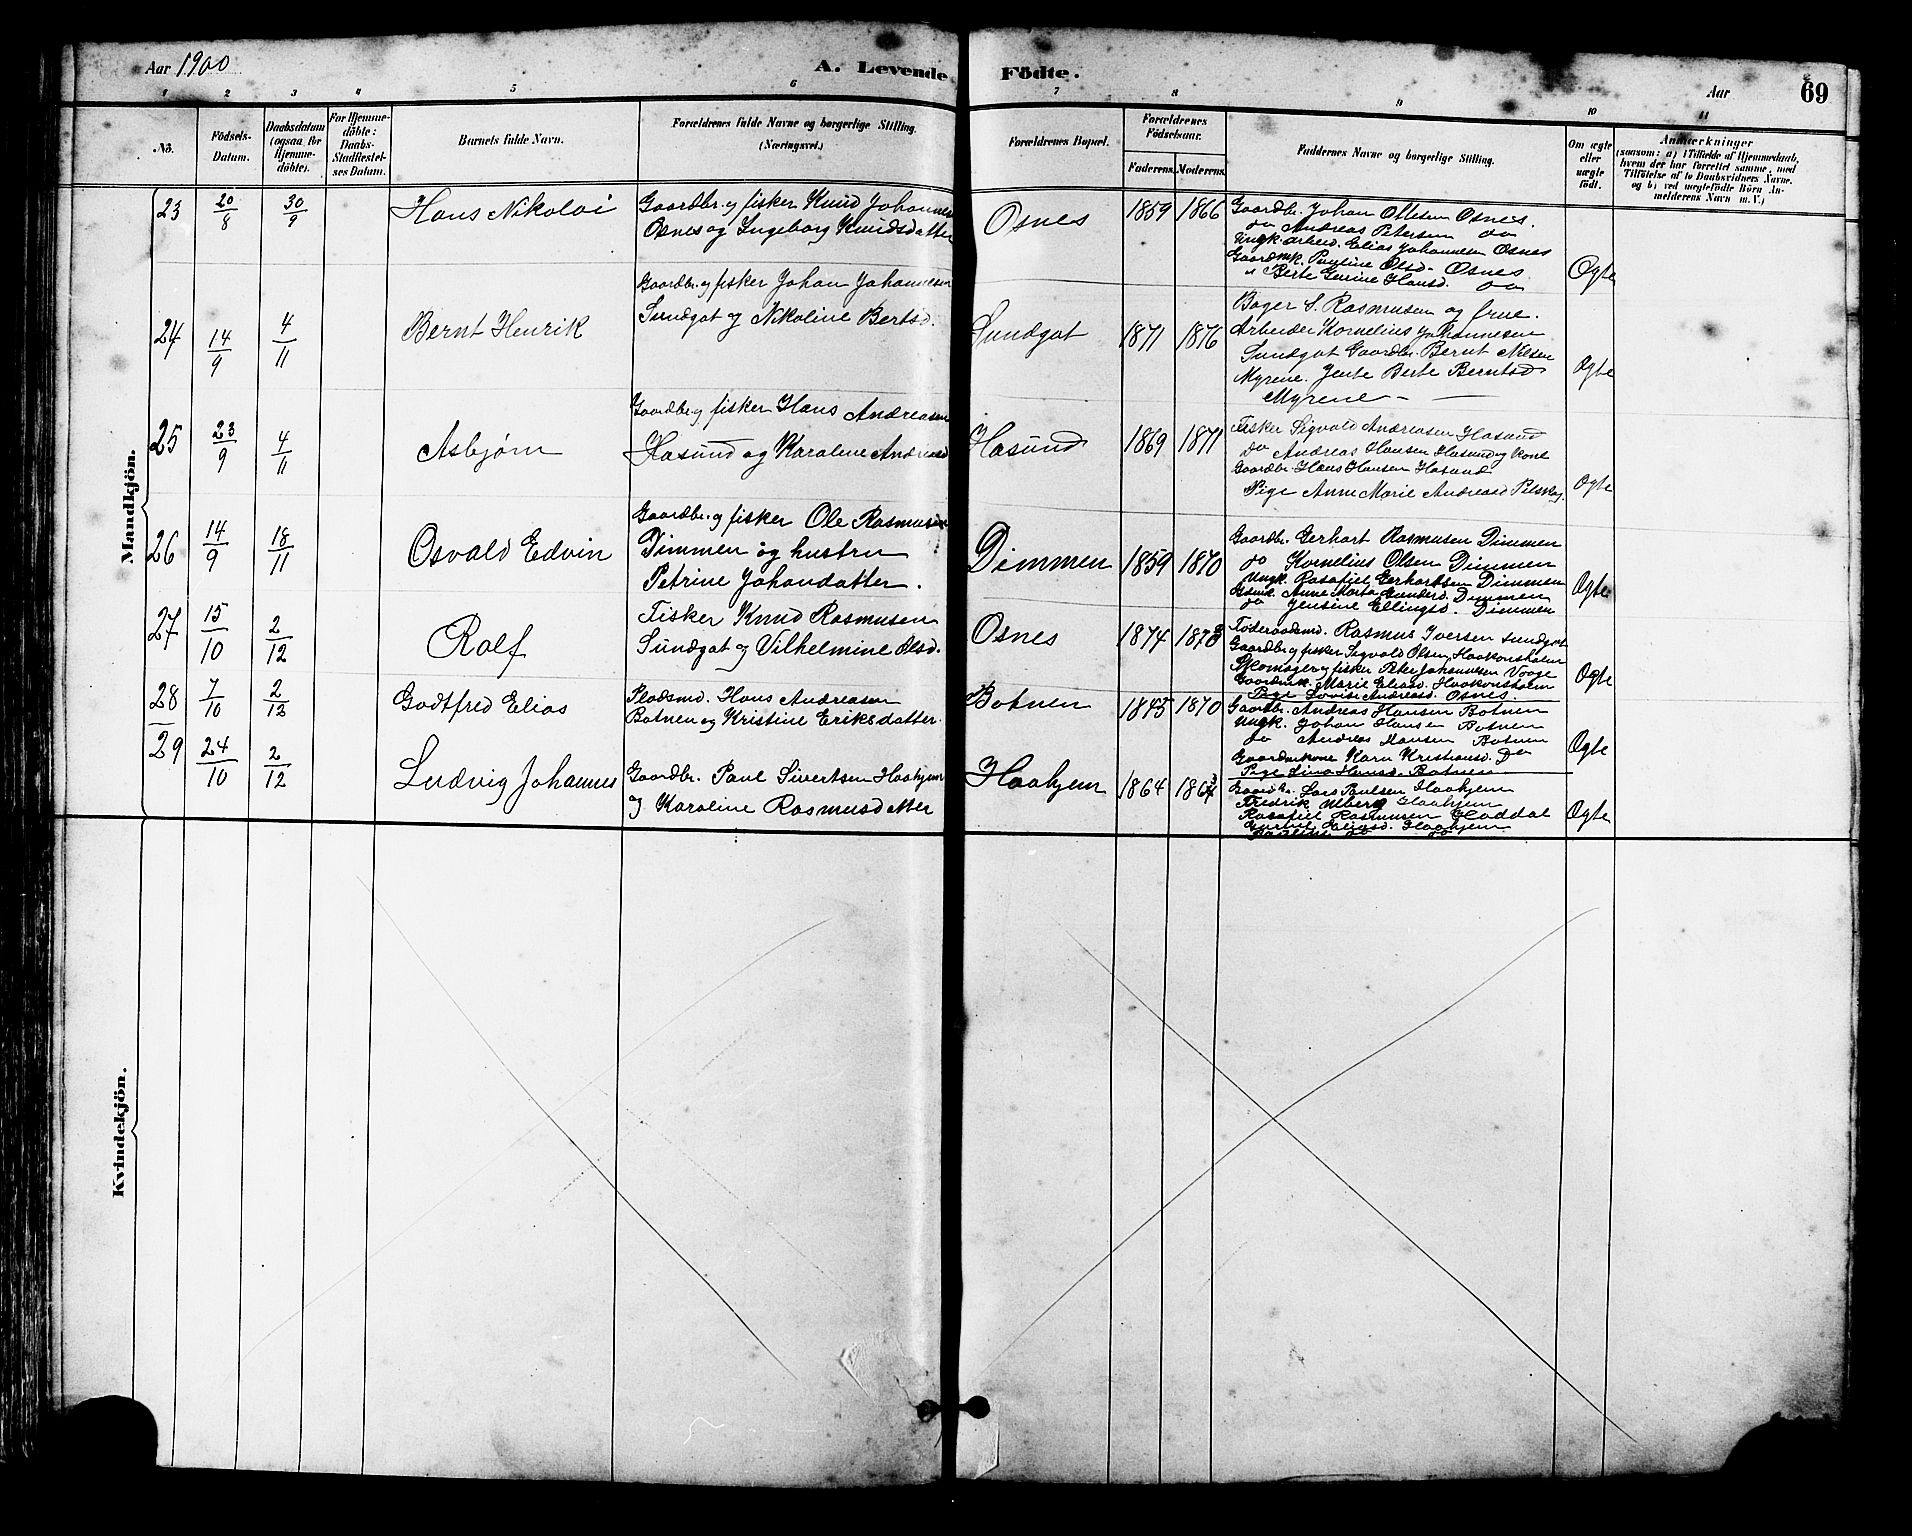 Aar 1900
A. Levende Födte.
Aar
69
1 2 3 4 5 6 7 8 9 10 11
No.
Födsels-Datum.
Daabsdatum (ogsaa for Hjemme-döbte).
For Hjemme-döbte: Daabs-Stadfæstel-ses Datum.
Barnets fulde Navn.
Forældrenes fulde Navne og borgerlige Stilling. (Næringsvei.)
Forældrenes Bopæl.
Forældrenes Födselsaar.
Faderens. Moderens.
Faddernes Navne og borgerlige Stilling.
Om ægte eller uægte födt.
Anmærkninger
(saasom: a) i Tilfælde af Hjemmedaab, hvem der har forrettet samme, med Tilföielse af to Daabsvidners Navne, og b) ved uægtefödte Börn An-melderens Navn m. V.)
Mandkjön.
23 20/8 30/9 Hans Nikolai
Gaardbr. og fisker Knud Johannes
Osnes og Ingeborg Knudsdatter
Osnes 1859 1866
Gaardbr. Johan Ottesen Osnes.
do Andreas Petersen do
Ungk. arbeid. Elias Johannesen Osnes
Gaardmk. Pauline Olsd. Osnes
" Berte Gurine Hansd. do
Ægte
24 14/9 4/11 Bernt Henrik
Gaardbr. og fisker Johan Johannesen
Sundgot og Nikoline Bertsd.
Sundgot 1871 1876
Bager S. Rasmusen og frue.
Arbeider Kornelius Johannesen
Sundgot Gaardbr. Bernt Nilsen
Myrene. Jente Berte Berntsd
Myrene
Ægte
25 23/9 4/11 Asbjørn
Gaardbr. og fisker Hans Andreasen
Hasund og Karoline Andreasd
Hasund 1869 1871
Fisker Sigvald Andreasen Hasund
do Andreas Hansen Hasund og kone
Gaardbr. Hans Hansen Hasund
Pige Anne Marie Andreasd
Ægte
26 14/9 18/11 Osvald Edvin
Gaardbr. og fisker Ole Rasmusen
Dimmen og hustru
Petrine Johansdatter.
Dimmen 1859 1870
Gaardbr. Gerhart Rasmusen Dimmen
do Kornelius Olsen Dimmen
Ungk. Rasafiel Gerhartsen Dimmen
Gdmk. Anne Marta Gundersd. Dimmen
do Jensine Ellingsd. Dimmen
Ægte
27 15/10 2/12 Rolf
Fisker Knud Rasmusen
Sundgot og Vilhelmine Olsd.
Osnes 1874
Føderaadsmd. Rasmus Iversen Sundgot
Gaardbr. og fisker Sigvald Olsen Haakonsholm
Skomager og fisker Peter Johannesen Voge
Gaardmk. Marie Eliasd. Haakonsholm
Pige Lovise Andreasd. Osnes.
Ægte
28 7/10 2/12 Godtfred Elias
Pladsmd. Hans Andreasen
Botnen og Kristine Eriksdatter.
Botnen 1845 1870
Gaardbr. Andreas Hansen Botnen
Ungk. Johan Hansen Botnen
do Andreas Hansen Botnen
Gaardmkone Karn Kristiansd. Do
Pige Lina Hansd. Botnen
Ægte
29 24/10 2/12 Ludvig Johannes
Gaardbr. Paul Sivertsen Haahjem
og Karoline Rasmusdatter
Haahjem 1864
Gaardbr. Lars Paulsen Haahjem
Fredrik Ulberg Haahjem
Rasafiel Rasmusen Haddal
Eliasd. Haahjem
Ægte
Kvindekjön.